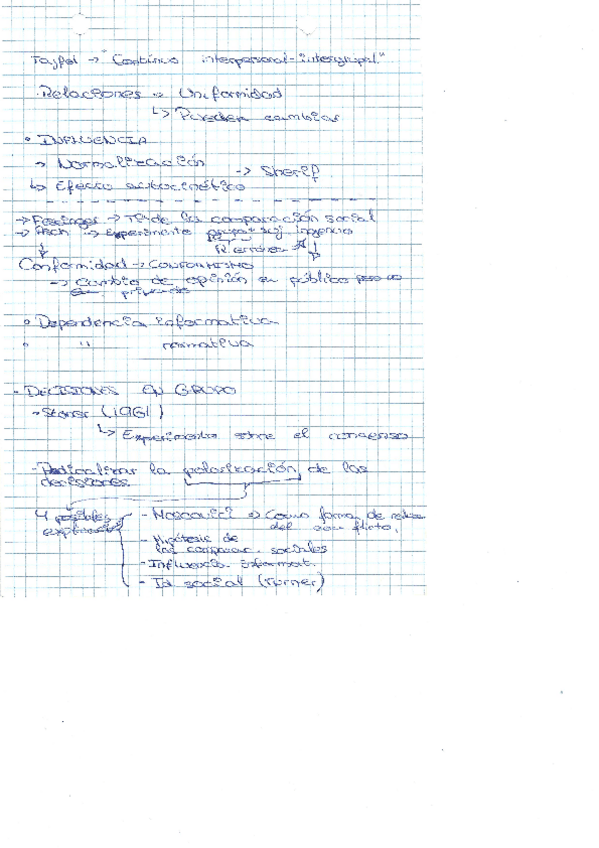 Tajfel → "Continuo interpersonal-intergrupal"
· Relaciones → Uniformidad
↳ Pueden cambiar
• INFLUENCIA
→ Normalización
→ Sherif
↳ Efecto autocinético
→ Festinger → Tª de la comparación social
→ Asch → Experimento grupo + suj ingenuo
Conformidad → CONFORMISMO
→ Cambio de opinión en público pero no
en privado
• Dependencia informativa
• " normativa
- DECISIONES EN GRUPO
- Stoner (1961)
↳ Experimento sobre el consenso
- Radicalizar la polarización de las
decisiones
4 posibles
- Moscovici → Como forma de
del conflicto.
- Hipótesis de
las comparac. sociales
- Influencia informat.
- Id social (Turner)